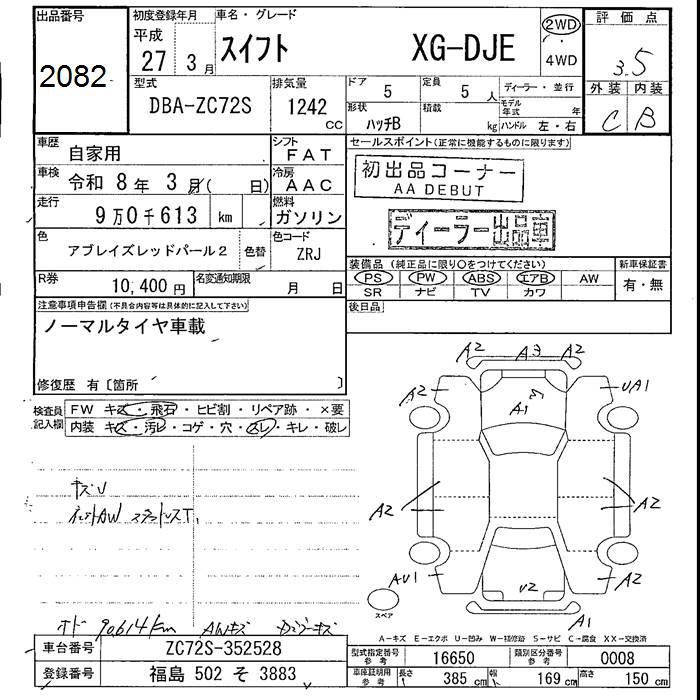 出品番号 初度登録年月 車名・グレード 評価点
2082 平成 27年 3月 スイフト XG-DJE 2WD・4WD 3.5
型式 排気量 ドア 定員 ディーラー・並行 外装 内装
DBA-ZC72S 1242 CC 5 5人 モデル年式 年 C B
形状 積載
ハッチB kg ハンドル 左・右
車歴 自家用 シフト FAT セールスポイント(正常に機能するものに限ります)
車検 令和 8年 3月( 日) 冷房 AAC 初出品コーナー
AA DEBUT
走行 9万0千613 km 燃料 ガソリン ディーラー出品車
色 アブレイズレッドパール2 色替 色コード ZRJ
装備品(純正品に限り○をつけてください) 新車保証書
R券 10,400円 名変通知期限 月 日 PS PW ABS エアB AW 有・無
SR ナビ TV カワ
注意事項申告欄(不具合内容等は具体的に記入して下さい) 後日品
ノーマルタイヤ車載
修復歴 有〔箇所 〕
検査員記入欄 FW キズ・飛石・ヒビ割・リペア跡・×要
内装 キズ・汚レ・コゲ・穴・スレ・キレ・破レ
A2 A3 A2
A2 A1 UA1
キズU
A2 A2
AU1 U2 A2
スペア A1
90614km AWキズ
A-キズ E-エクボ U-凹み W-補修跡 S-サビ C-腐食 XX-交換済
車台番号 ZC72S-352528 型式指定番号 参考 16650 類別区分番号 参考 0008
登録番号 福島 502 そ 3883 車庫証明用 参考 長さ 385 cm 幅 169 cm 高さ 150 cm